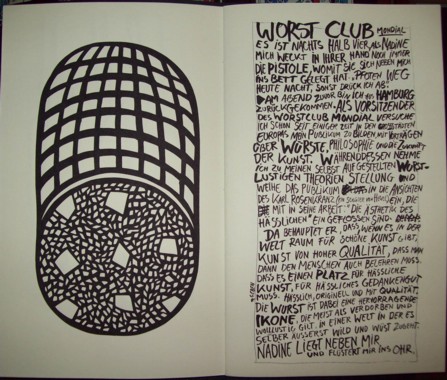 WORST CLUB MONDIAL
ES IST NACHTS HALB VIER, ALS NADINE
MICH WECKT. IN IHRER HAND NOCH IMMER
DIE PISTOLE, WOMIT SIE SICH NEBEN MICH
INS BETT GELEGT HAT. „PFOTEN WEG
HEUTE NACHT, SONST DRÜCK ICH AB."
AM ABEND ZUVOR BIN ICH AUS HAMBURG
ZURÜCKGEKOMMEN. ALS VORSITZENDER
DES WORSTCLUB MONDIAL VERSUCHE
ICH SCHON SEIT EINIGER ZEIT IN DEN STÄDTEN
EUROPAS MEIN PUBLIKUM ZU BILDEN MIT VORTRÄGEN
ÜBER WÜRSTE, PHILOSOPHIE UND DIE ZUKUNFT
DER KUNST. WÄHRENDDESSEN NEHME
ICH ZU MEINEN SELBST AUFGESTELLTEN WORST-
LUSTIGEN THEORIEN STELLUNG UND
WEIHE DAS PUBLIKUM IN DIE ANSICHTEN
DES KARL ROSENKRANZ EIN, DIE
MIT IN SEINE ARBEIT „DIE ÄSTHETIK DES
HÄSSLICHEN" EINGEFLOSSEN SIND.
DA BEHAUPTET ER, DASS, WENN ES IN DER
WELT RAUM FÜR SCHÖNE KUNST GIBT,
KUNST VON HOHER QUALITÄT, DASS MAN
DANN DEN MENSCHEN AUCH BELEHREN MUSS,
DASS ES EINEN PLATZ FÜR HÄSSLICHE
KUNST, FÜR HÄSSLICHES GEDANKENGUT
MUSS. HÄSSLICH, ORIGINELL UND MIT QUALITÄT.
DIE WURST IST DABEI EINE HERVORRAGENDE
IKONE, DIE MEIST ALS VERDORBEN UND
WOLLUSTIG GILT. IN EINER WELT IN DER ES
SELBER ÄUSSERST WILD UND WÜST ZUGEHT.
NADINE LIEGT NEBEN MIR
UND FLÜSTERT MIR INS OHR.
GEBEN